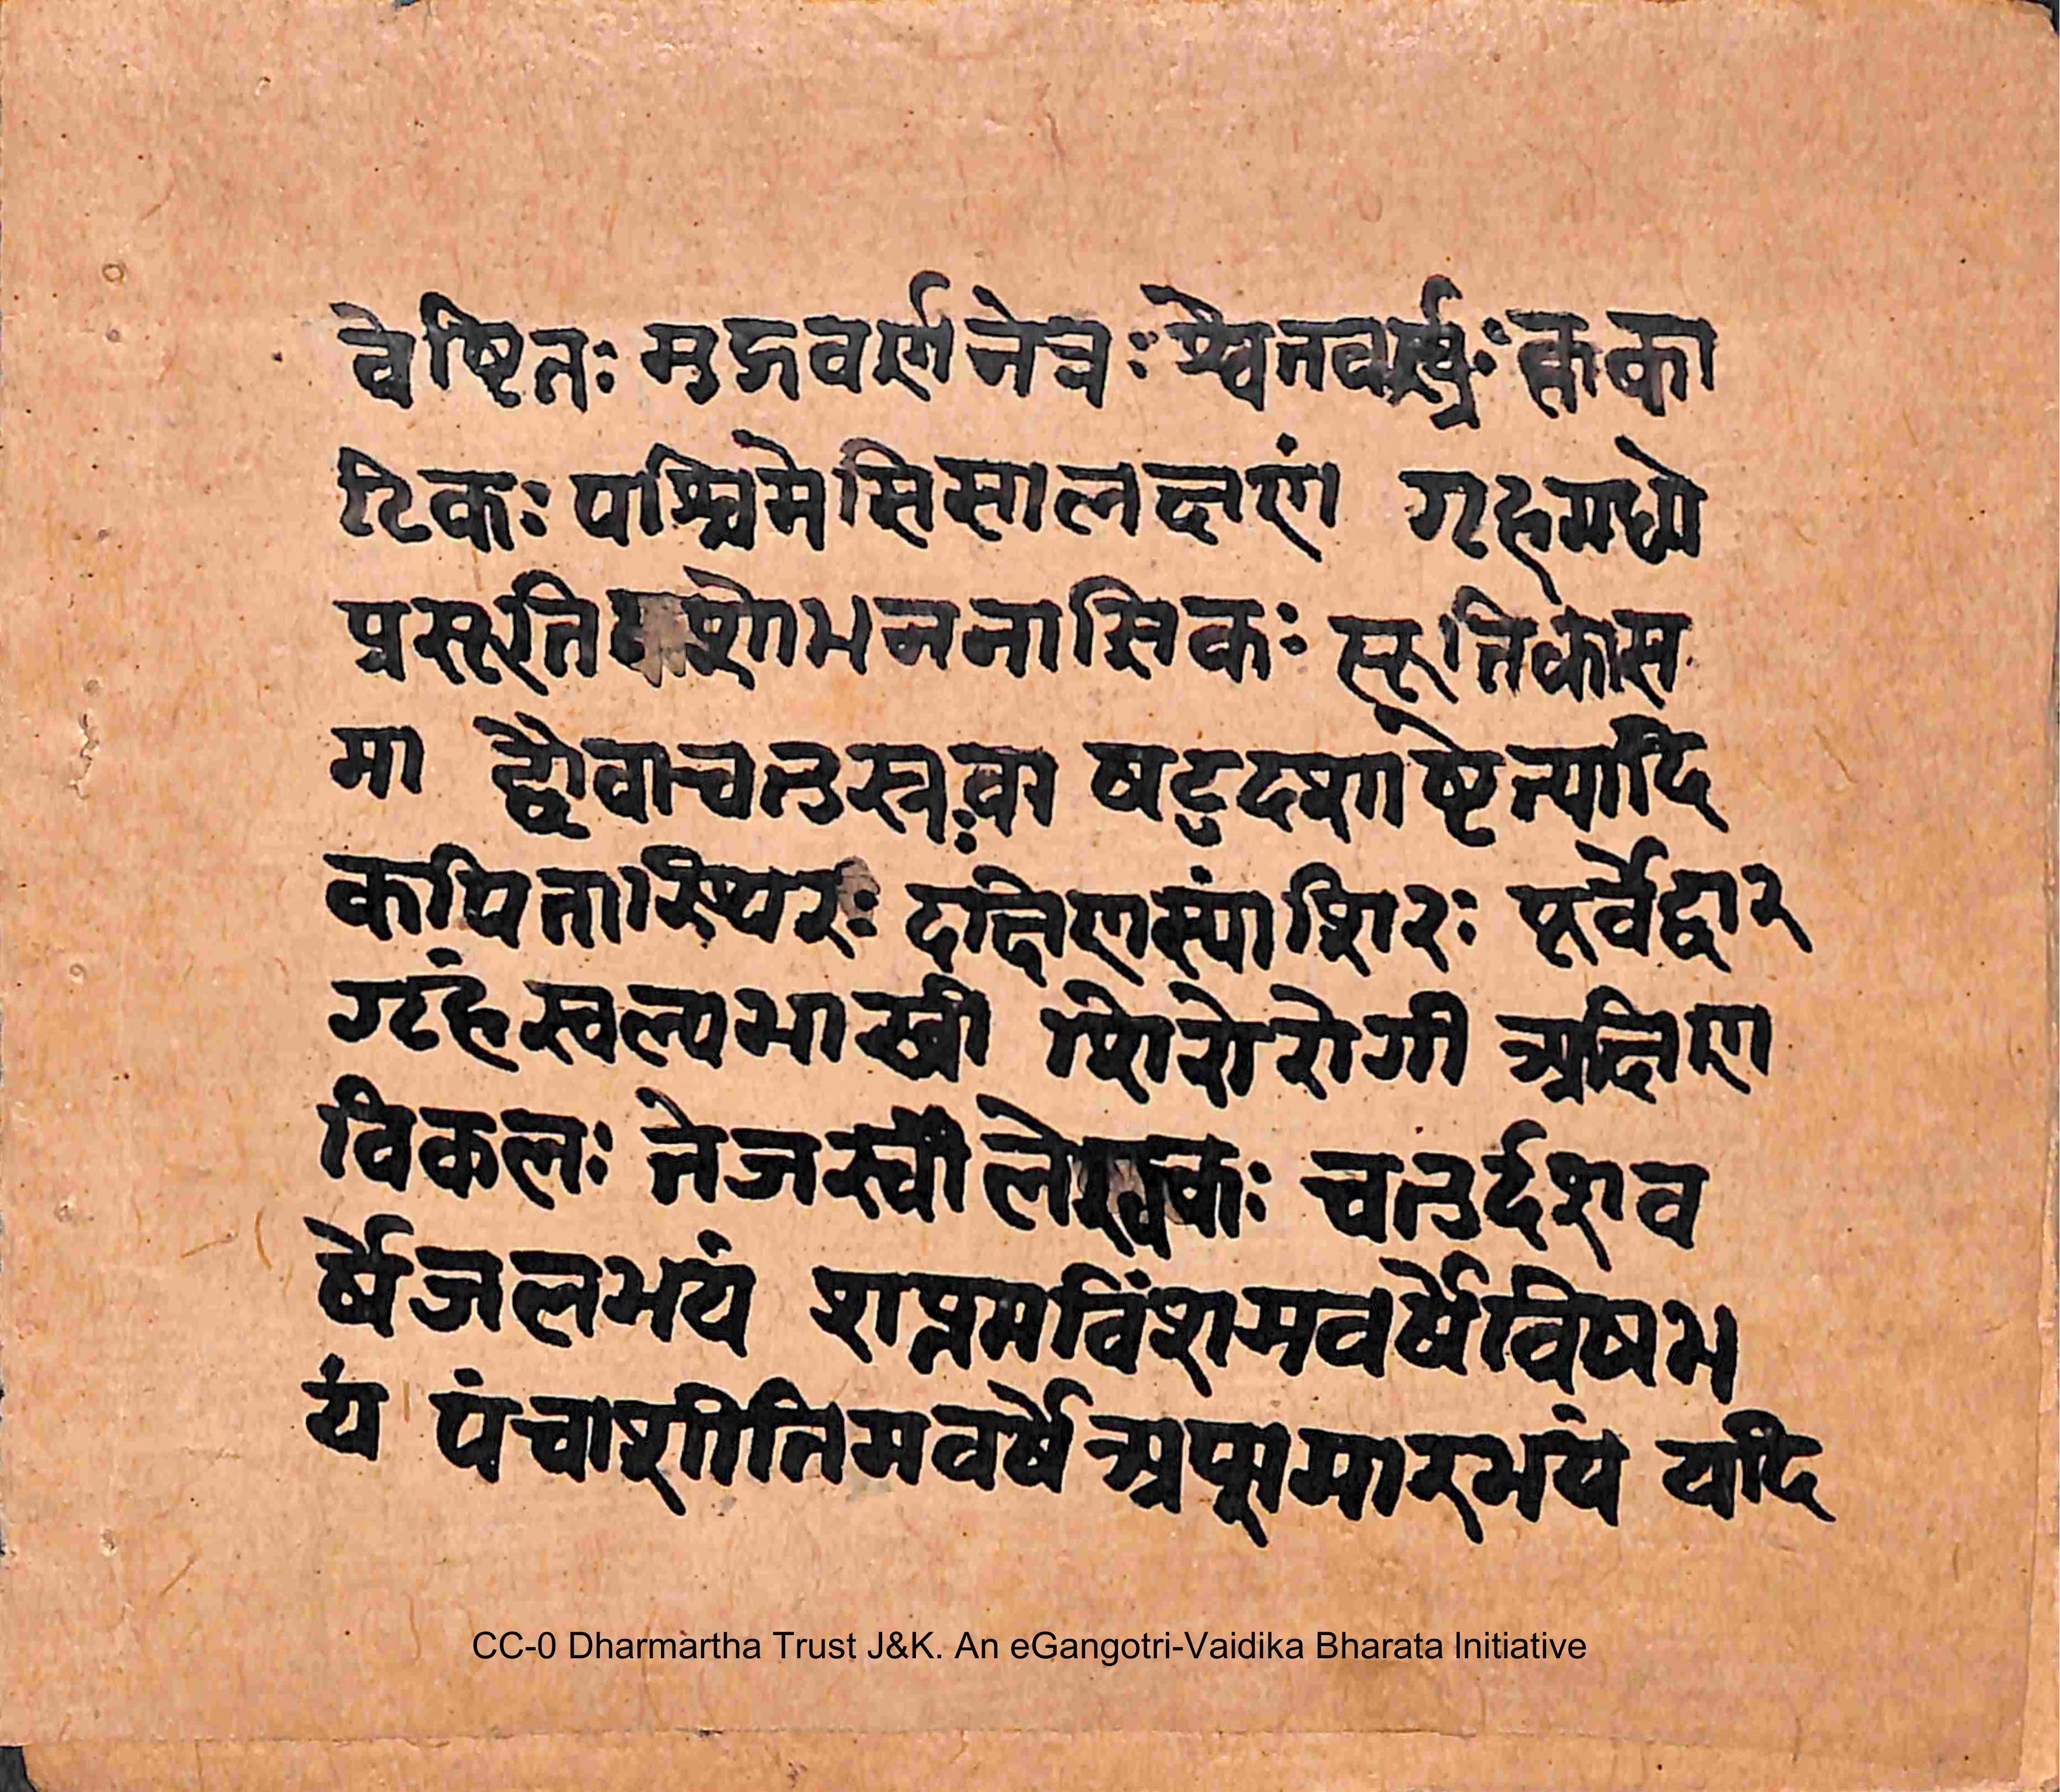 वेष्टितः मुद्गवर्णनेत्रः श्वेतवर्णः कृका
टिकः पश्चिमे सिसालक्षणं गृहमध्ये
प्रसूति शोभननासिकः सूतिकास
मा द्वौवाचतुस्त्रवा षट्दशाष्टेत्यादि
कपितास्थिरः दक्षिणस्यां शिरः पूर्वेद्वार
गृहं स्वल्पभाखी शिरोरोगी अक्षिण
विकलः तेजस्वी लेखकः चतुर्दशव
र्षे जलभयं शप्तमविंशमवर्षे विषभ
यं पंचाशीतिमवर्षे अप्स्मारभयं यदि
CC-0 Dharmartha Trust J&K. An eGangotri-Vaidika Bharata Initiative